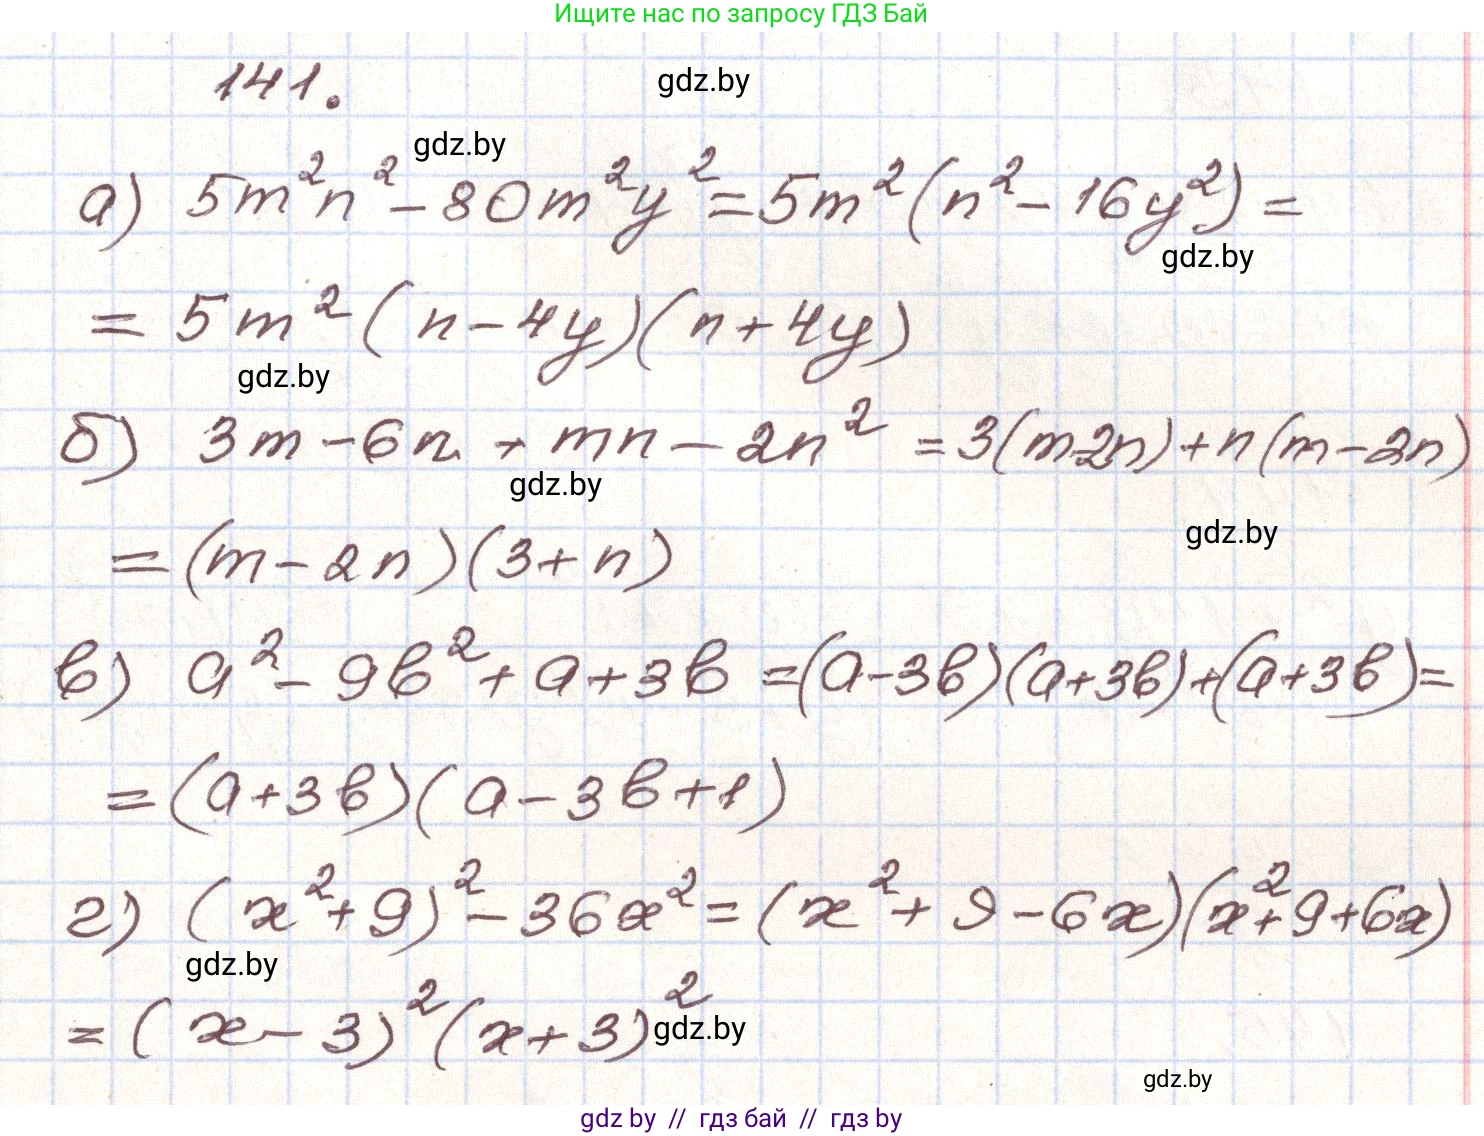 Ищите нас по запросу ГДЗ Бай
141.
gdz.by
gdz.by
а) 5m²n² - 80m²y² = 5m²(n² - 16y²) =
gdz.by
= 5m²(n - 4y)(n + 4y)
gdz.by
б) 3m - 6n + mn - 2n² = 3(m-2n) + n(m - 2n)
gdz.by
gdz.by
= (m - 2n)(3 + n)
в) a² - 9b² + a + 3b = (a - 3b)(a + 3b) + (a + 3b) =
= (a + 3b)(a - 3b + 1)
г) (x² + 9)² - 36x² = (x² + 9 - 6x)(x² + 9 + 6x)
gdz.by
= (x - 3)²(x + 3)²
gdz.by
gdz.by
gdz by // гдз бай // гдз by